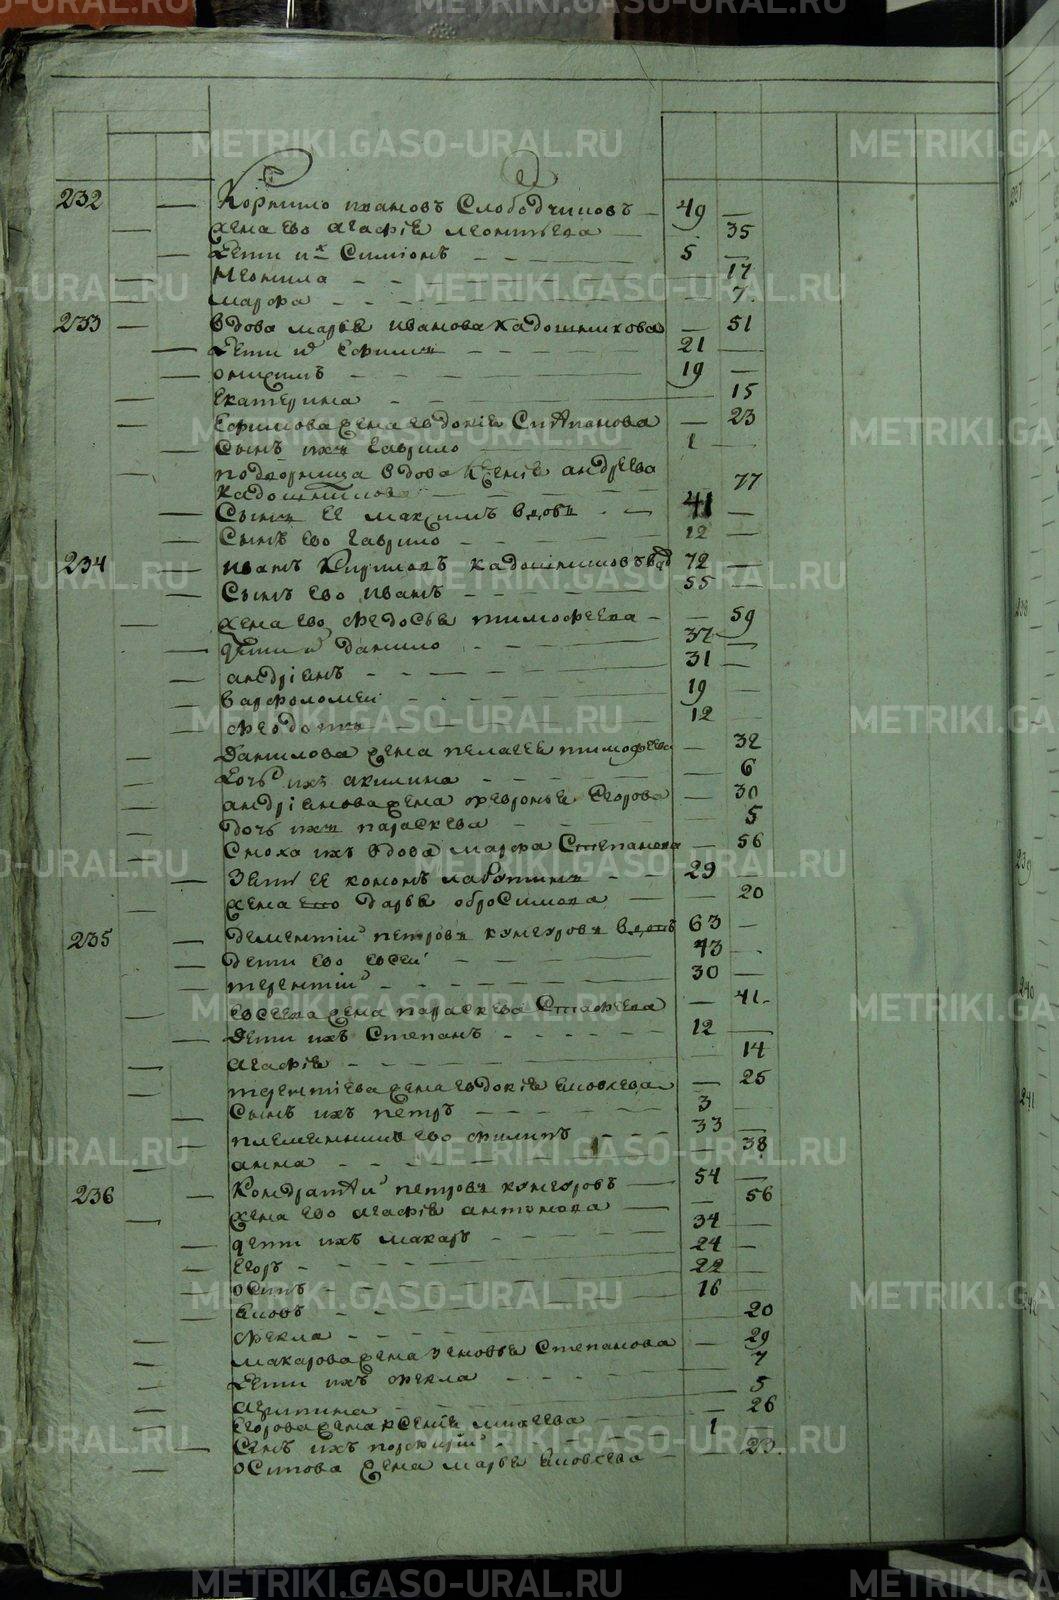 232 Корнило иvановъ Слободчиковъ 49
жена ево агафiя леонтьева 35
дети их Симионъ 5
Неонила 17
марфа 7
233 вдова марья иванова Кадошникова 51
дети ея Ефимъ 21
онисимъ 19
екатерина 15
Ефимова жена евдокiя Степанова 23
Сынъ ихъ Гаврило 1
подворница вдова Ксенiя андреева
Кадошникова 77
Сынъ ее максимъ вдовъ 41
Сынъ ево Гаврило 12
234 иванъ Кирилов кадошниковъ вдо 72
Сынъ ево иванъ 55
жена ево федосья тимофеева 59
дети и Данило 37
андрiянъ 31
варфоломей 19
федотъ 12
Данилова жена пелагея тимофеева 32
дочь ихъ акилина 6
андрiянова жена февронья Егорова 30
дочь ихъ параскева 5
Сноха ихъ вдова марфа Степанова 56
Зять ее кононъ 29
жена ево дарья обросимова 20
235 дементiй петровъ кунгуровъ вдовъ 63
дети ево евсей 43
терентiй 30
евсеева жена параскева 41
дети ихъ Степанъ 12
агафiя 14
терентiева жена евдокiя яковлева 25
Сынъ ихъ петръ 3
племянникъ ево филипъ 33
анна 38
236 Кондратей петровъ кунгуровъ 54
жена ево агафiя антонова 56
дети ихъ макаръ 34
егоръ 24
осипъ 22
яковъ 16
фекла 20
макарова жена зеновья Степанова 29
дети ихъ фекла 7
агрипина 5
егорова жена ксенiя михеева 26
Сынъ ихъ порфирiй 1
осипова жена марья яковлева 23
METRIKI.GASO-URAL.RU